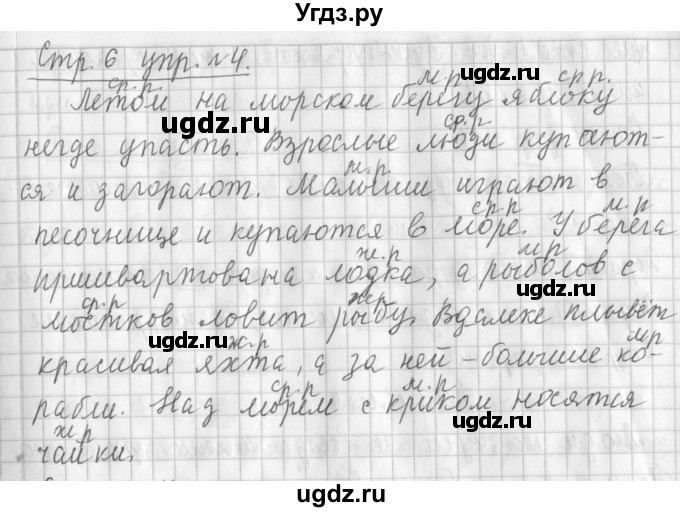 Угдз.ру
Стр. 6 упр. №4.
ср.р. м.р ср.р.
Летом на морском берегу яблоку
ugdz.ru ugdz.ru
ср.р
негде упасть. Взрослые люди купают-
м.р.
ся и загорают. Малыши играют в
ср.р м.р
песочнице и купаются в море. У берега
ж.р м.р
пришвартована лодка, а рыболов с
ugdz.ru ugdz.ru
ср.р ж.р
мостков ловит рыбу. Вдалеке плывёт
ж.р м.р
красивая яхта, а за ней – большие ко-
ср.р м.р
рабли. Над морем с криком носятся
ugdz.ru ugdz.ru
ж.р
чайки.
ugdz.ru